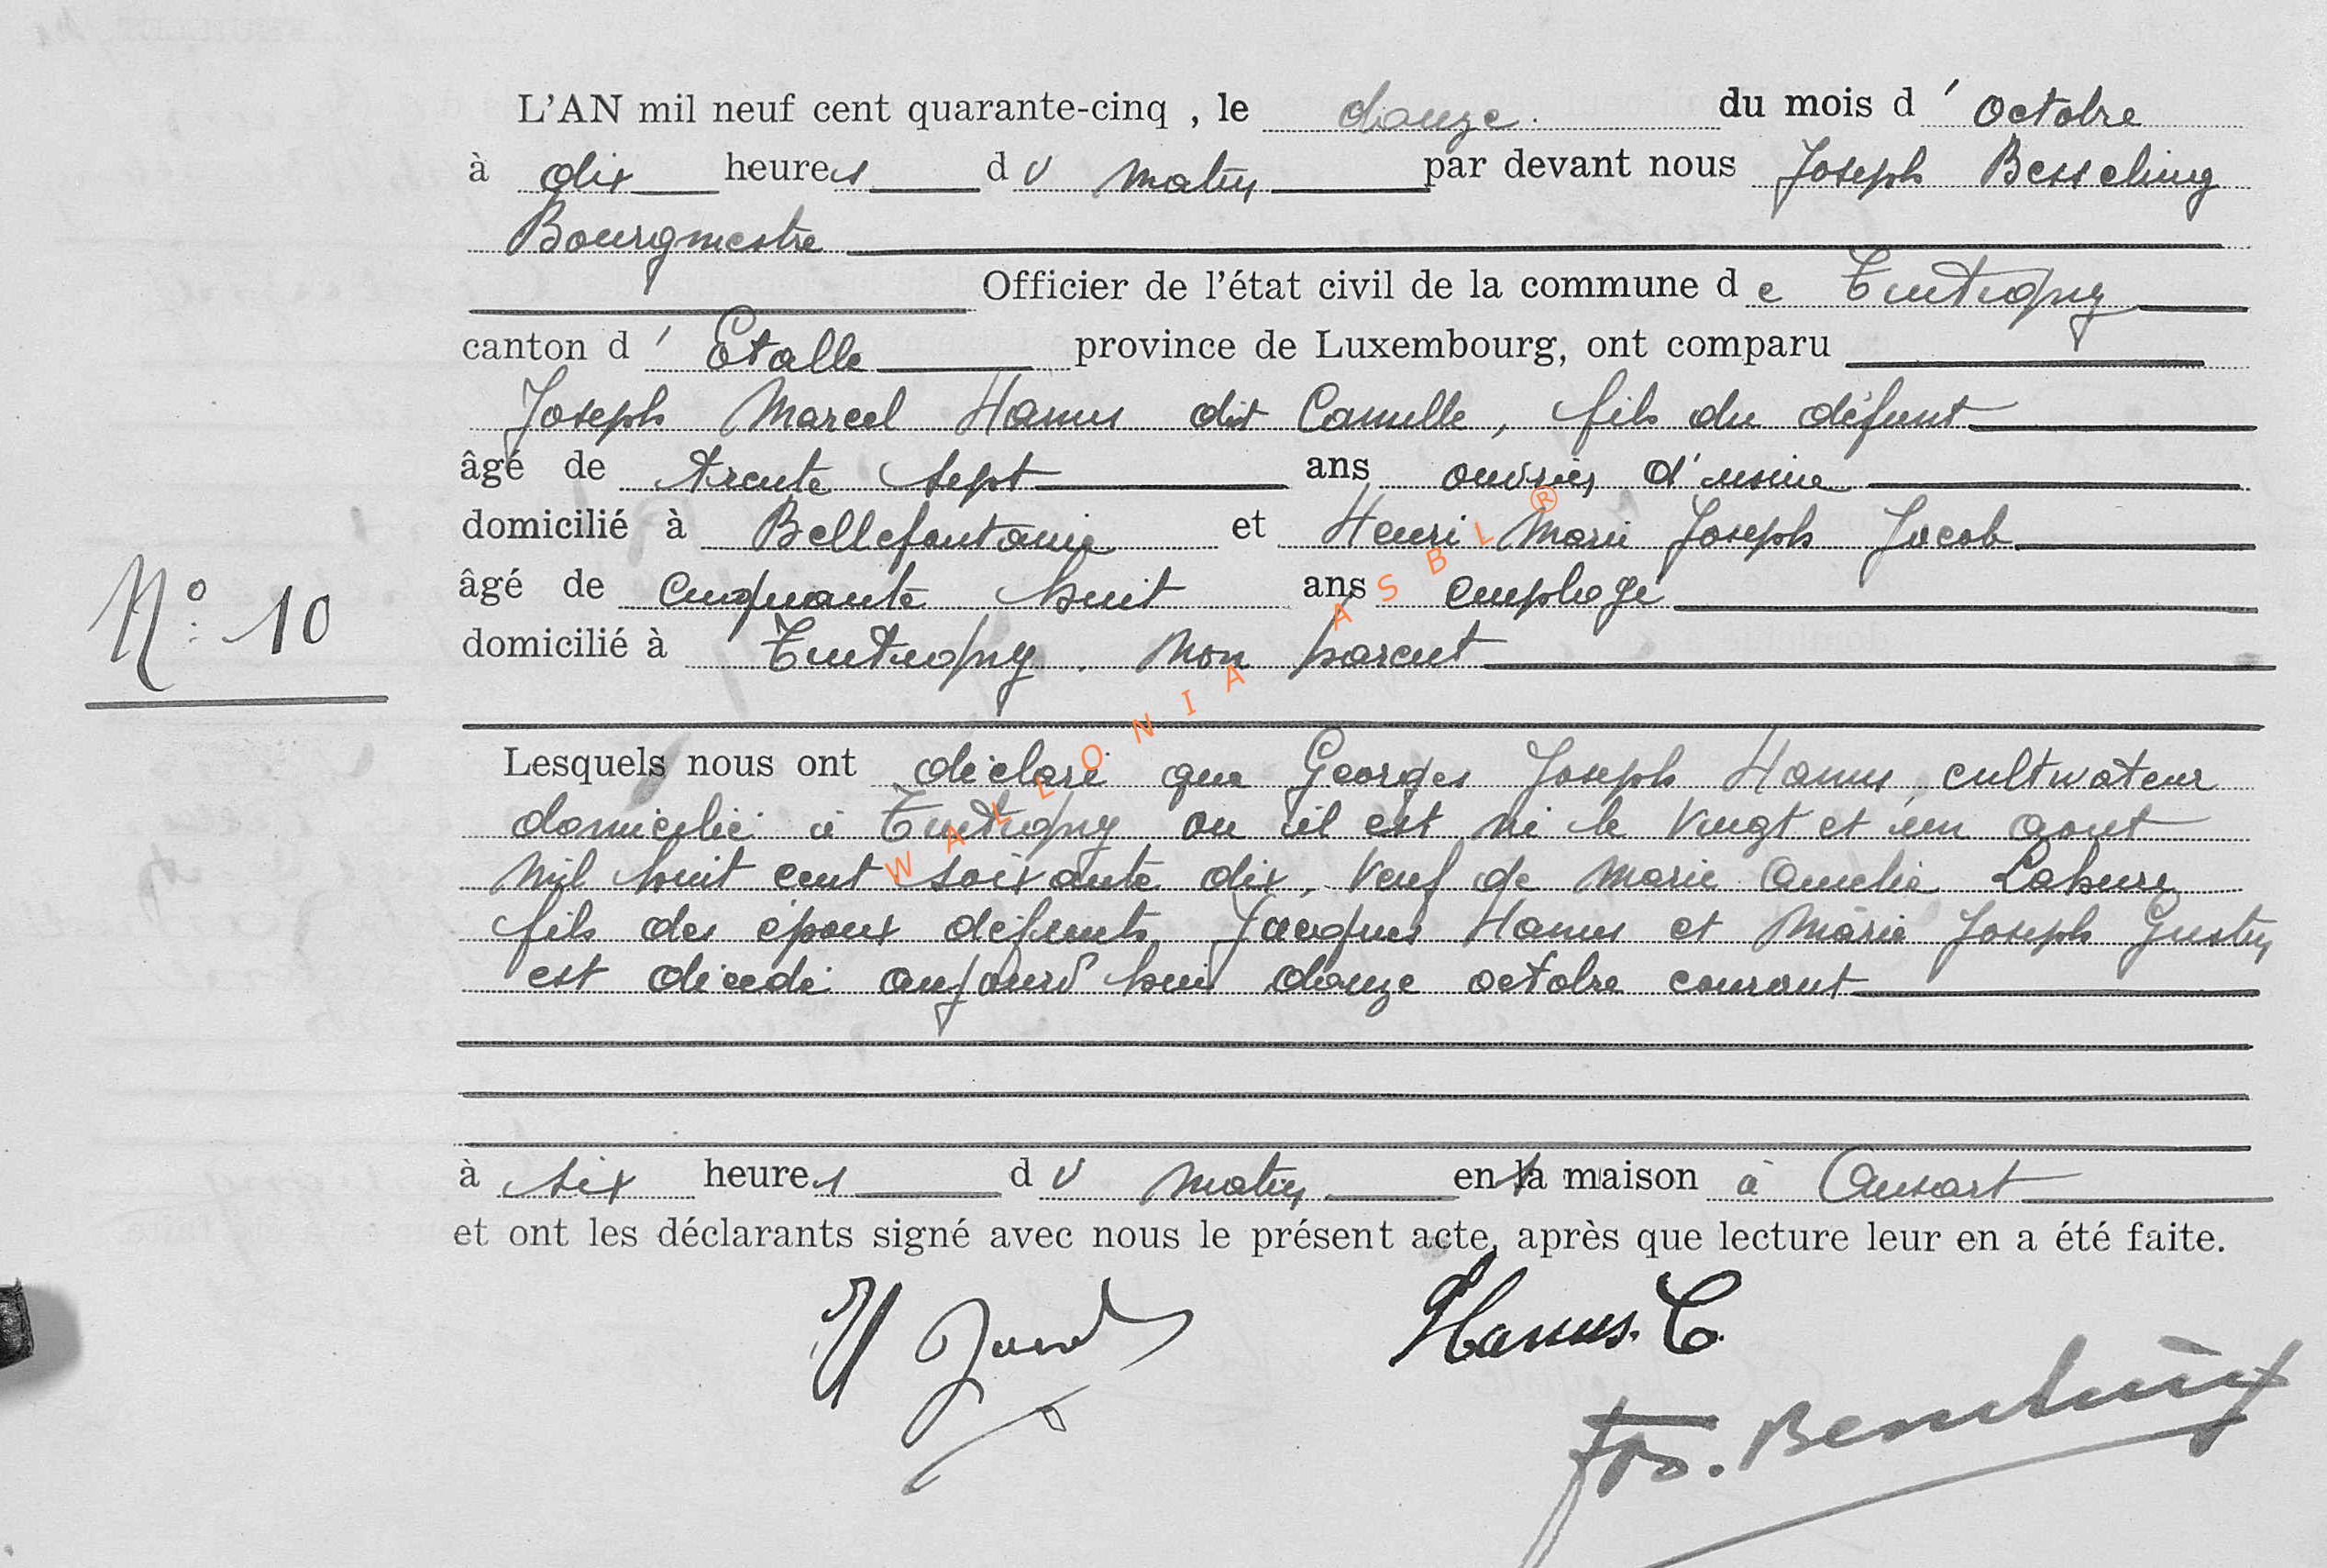 L'AN mil neuf cent quarante-cinq , le douze. du mois d ' octobre
à dix heures du matin par devant nous Joseph Bessching
Bourgmestre
Officier de l'état civil de la commune de Tintigny
canton d ' Etalle province de Luxembourg, ont comparu
Joseph Marcel Hanus dit Camille, fils du défunt
âgé de trente sept ans ouvrier d'usine
domicilié à Bellefontaine et Henri Marie Joseph Jacob
N° 10
âgé de cinquante huit ans employé
domicilié à Tintigny. Non parent
Lesquels nous ont déclaré que Georges Joseph Hanus, cultivateur
domicilié à Tintigny ou il est né le vingt et un aout
mil huit cent soixante dix, veuf de Marie Amélie Lahure
fils des époux défunts Jacques Hanus et Marie Joseph Gustin
est décédé aujourd'hui douze octobre courant
à six heures du matin en la maison à Ansart
et ont les déclarants signé avec nous le présent acte, après que lecture leur en a été faite.
H Jacob Hanus. C.
Jos.
WALLONIA ASBL ®